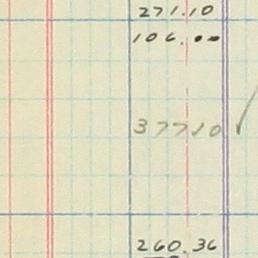 271.10
106.00
377.10
260.36